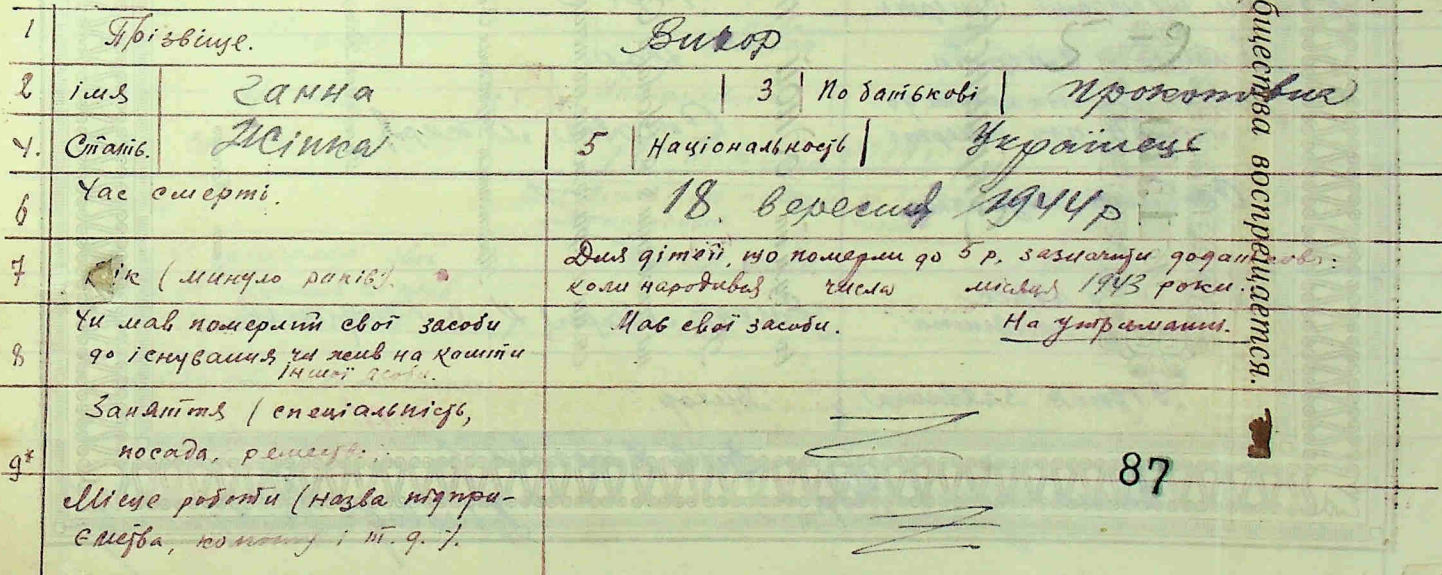 1 Прізвище. Вихор
2 імя Ганна 3 По батькові Прокоповна
4. Стать. Жінка 5 Національность Українець
6 Час смерті. 18. вересня 1944 р
7 Вік (минуло років). Для дітей, що померли до 5 р. зазначити додатково:
коли народився числа місяця 1943 роки.
Чи мав померлий свої засоби Мав свої засоби. На утриманні.
8 до існування чи жив на кошти
іншої особи.
Заняття (спеціальність,
9* посада, ремество.
87
Місце роботи (назва підпри-
ємства, колхозу і т. д.).
бщества воспрещается.